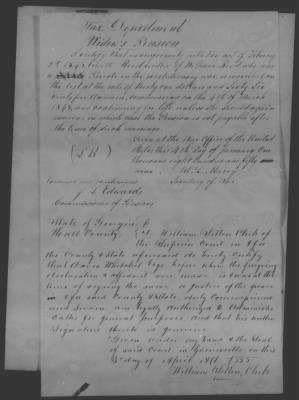 War Department
Widow's Pension
I certify that in conformity with the Act of Februy
2d 1848, widow of William
a Private in the revolutionary war, is inscribed on
the list at the rate of Twenty six dollars and sixty six
cents per annum, commencing on the 4th of March
1848, and continuing for life unless she should again
marry, in which case the Pension is not payable after
the time of such marriage.
Given at the War Office of the United
States this 4th day of January One
thousand eight hundred and fifty
W. L. Marcy
Secretary of War
J L Edwards
Commissioner of Pensions
State of Georgia
Hall County I William Clerk of
the Superior Court in & for
the County & State aforesaid do hereby Certify
that Esqr before whom the foregoing
declaration & affidavit were made is & was at the
time of signing the same a Justice of the peace
in & for said County & State, duly Commissioned
and Sworn, was legally Authorized to Administer
Oaths for general purposes and that his
Signature thereto is genuine
Given under my hand & the Seal
of said Court in Gainesville on this
day of April AD 1855
William Clerk